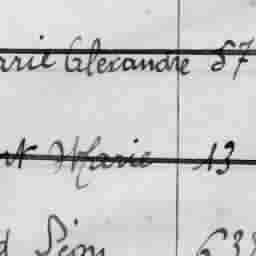 arie Alexandre 57
nt Marie 13
d Léon 638